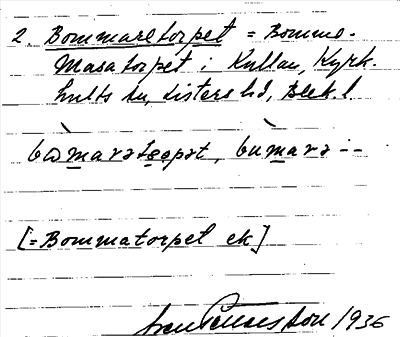 2. Bommaretorpet = Bomma-
Masatorpet i Kullan, Kyrk-
hults sn, Listers hd, Blek. l.
bωmarətωrpət, bùmarə --
[= Bommatorpet ek]
1936